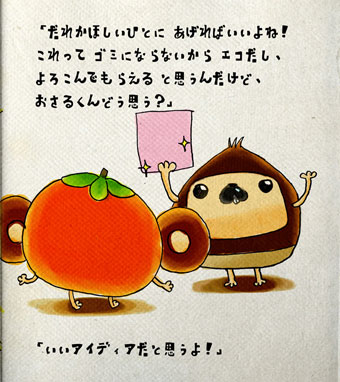 「だれかほしいひとに あげればいいよね！
これって ゴミにならないから エコだし、
よろこんでもらえると思うんだけど、
おさるくんどう思う？」
「いいアイディアだと思うよ！」